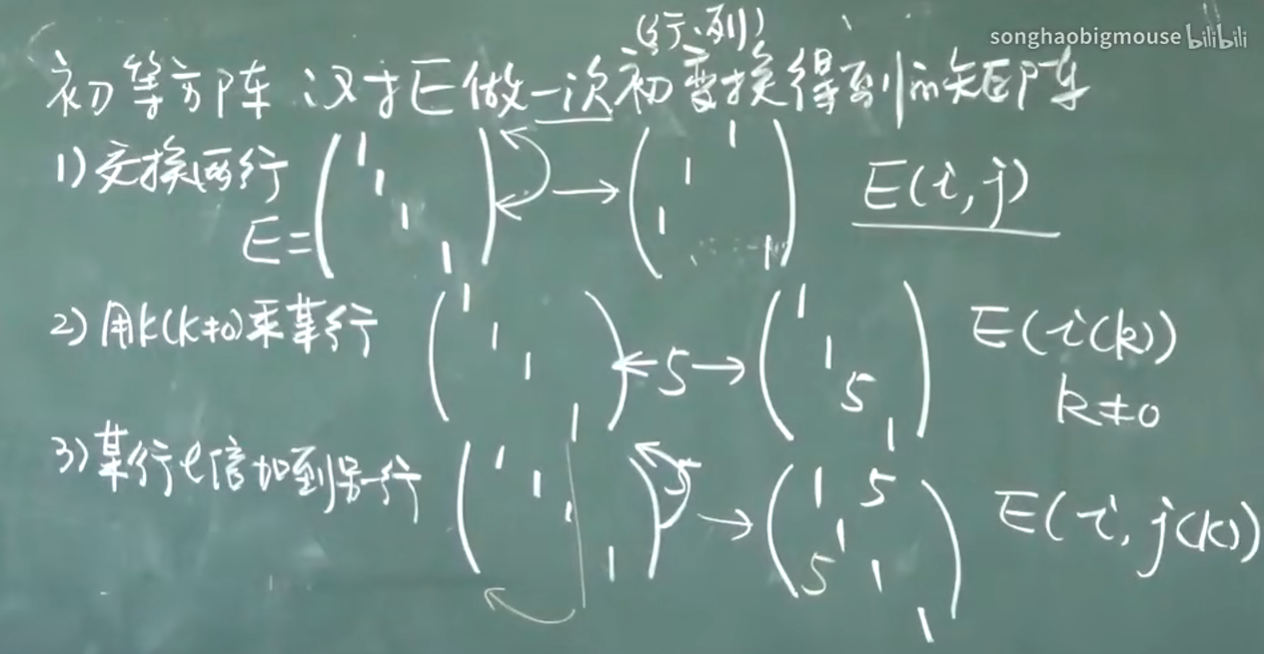 songhaobigmouse bilibili
(行、列)
初等方阵:对E做一次初变换得到的矩阵
1) 交换两行 E= ( 1 1 1 1 ) → ( 1 1 1 1 ) E(i,j)
2) 用k(k≠0)乘某行 ( 1 1 1 1 ) ←5→ ( 1 1 5 1 ) E(i(k))
k≠0
3) 某行l倍加到另一行 ( 1 1 1 1 ) 5 → ( 1 5 1 5 1 1 ) E(i,j(k))